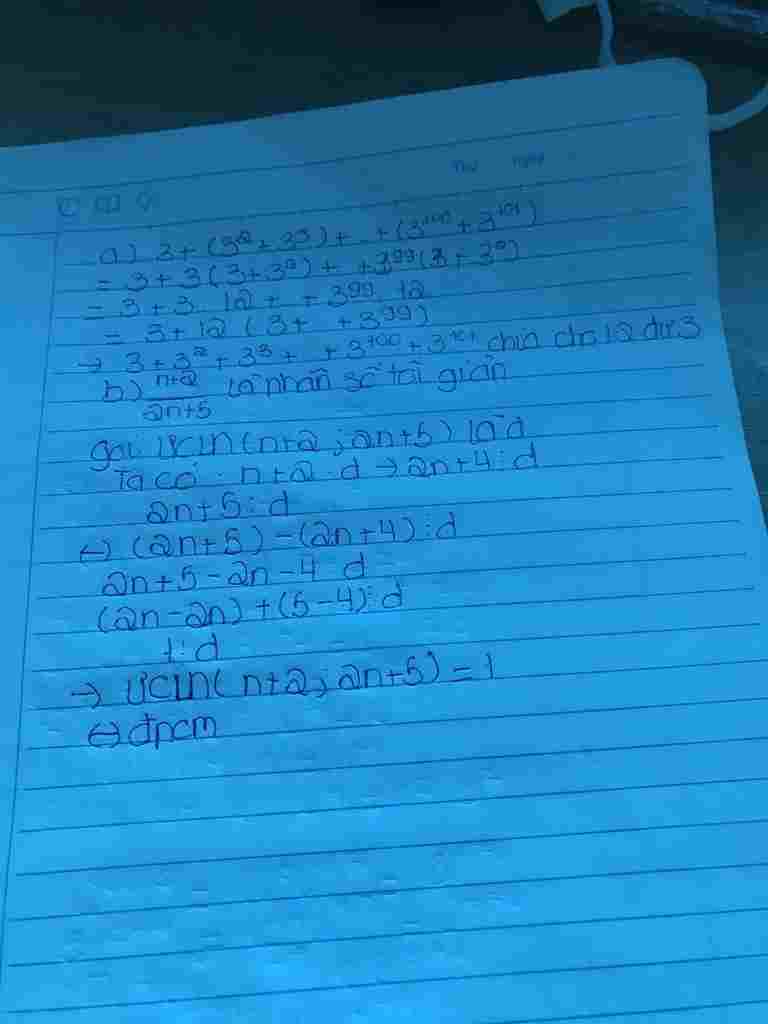 Thứ ngày
a) 3 + (3² + 3³) + + (3¹⁰⁰ + 3¹⁰¹)
= 3 + 3(3 + 3²) + + 3⁹⁹(3 + 3²)
= 3 + 3. 12 + + 3⁹⁹. 12
= 3 + 12 (3 + + 3⁹⁹)
→ 3 + 3² + 3³ + + 3¹⁰⁰ + 3¹⁰¹ chia cho 12 dư 3
b) n+2/2n+5 là phân số tối giản
gọi ƯCLN(n+2; 2n+5) là d
Ta có: n+2 ⋮ d → 2n+4 ⋮ d
2n+5 ⋮ d
↔ (2n+5) - (2n+4) ⋮ d
2n+5-2n-4 ⋮ d
(2n-2n) + (5-4) ⋮ d
1 ⋮ d
→ ƯCLN(n+2; 2n+5) = 1
⇔ đpcm